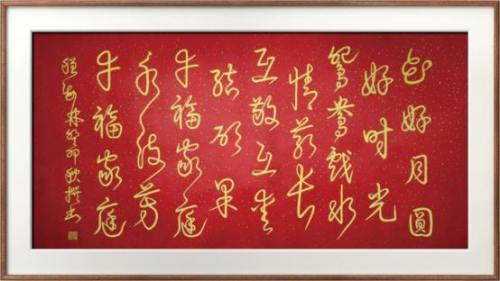 花好月圆
好时光
鸳鸯戏水
情义长
互敬互爱
结硕果
幸福家庭
永流芳
幸福家庭